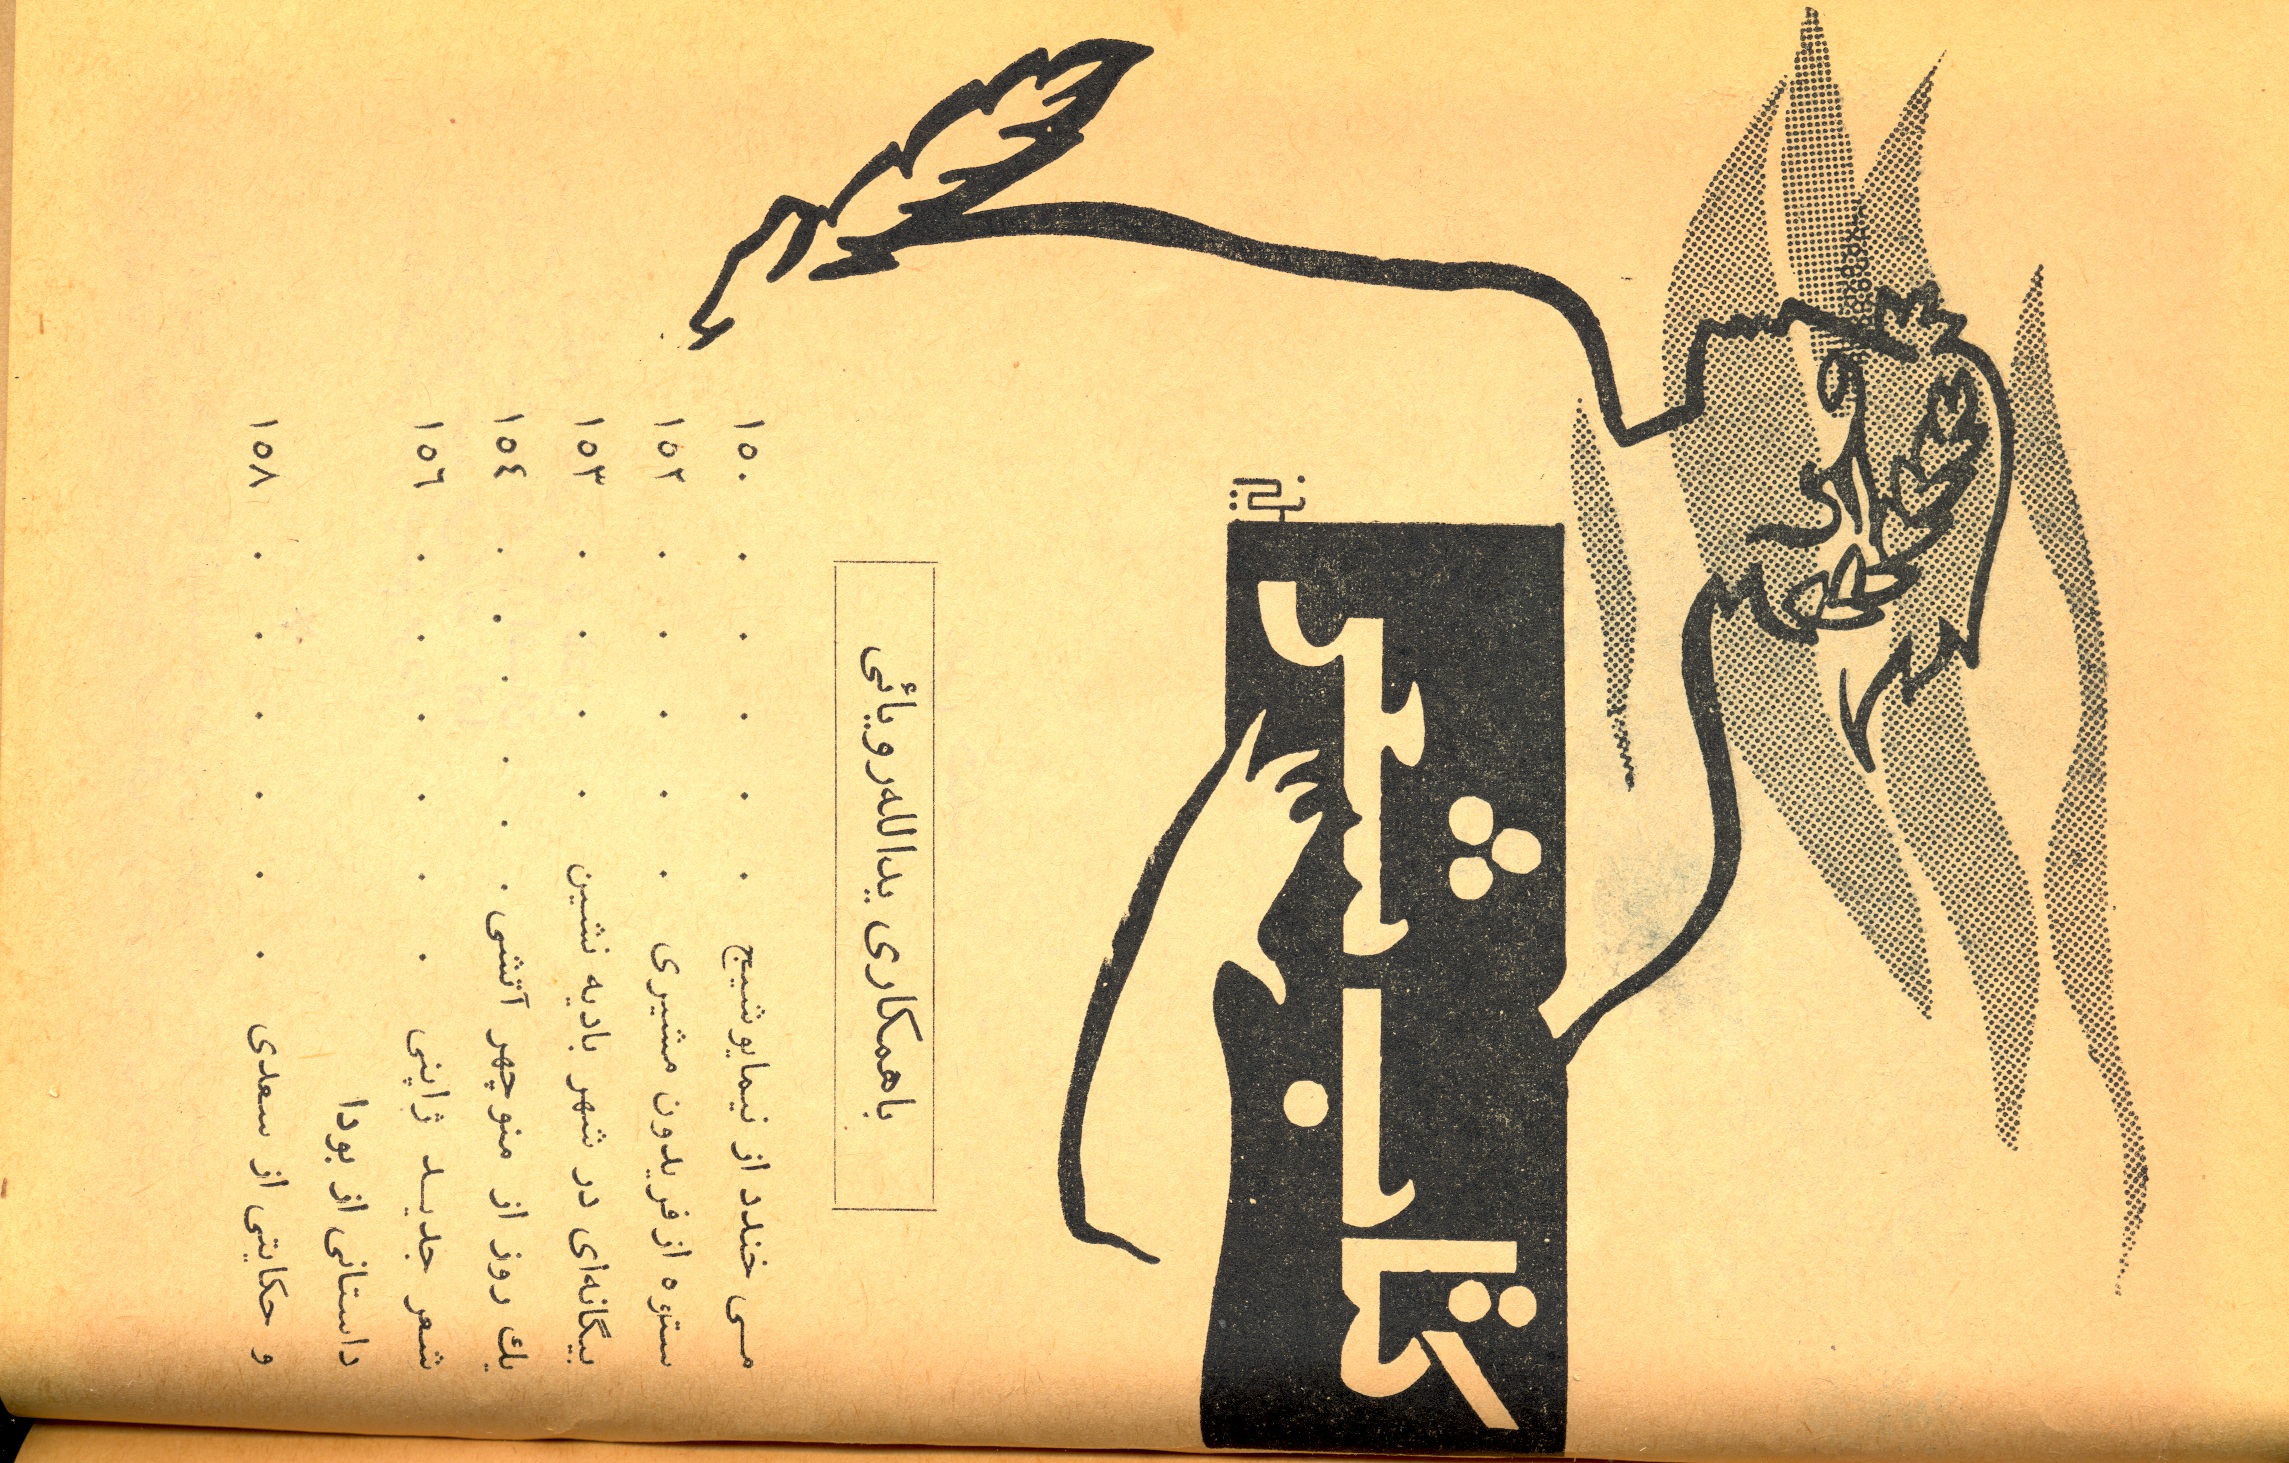 کتاب شعر
با همکاری یدالله رویائی
می خندد از نیمایوشیج . . . . . ۱۵۰
ستوه از فریدون مشیری . . . . . ۱۵۲
بیگانه‌ای در شهر بادیه نشین . . . . ۱۵۳
یك روز از منوچهر آتشی . . . . . . ۱۵٤
شعر جدیـد ژاپنی . . . . . . ۱۵٦
داستانی از بودا
و حکایتی از سعدی . . . . . . ۱۵۸